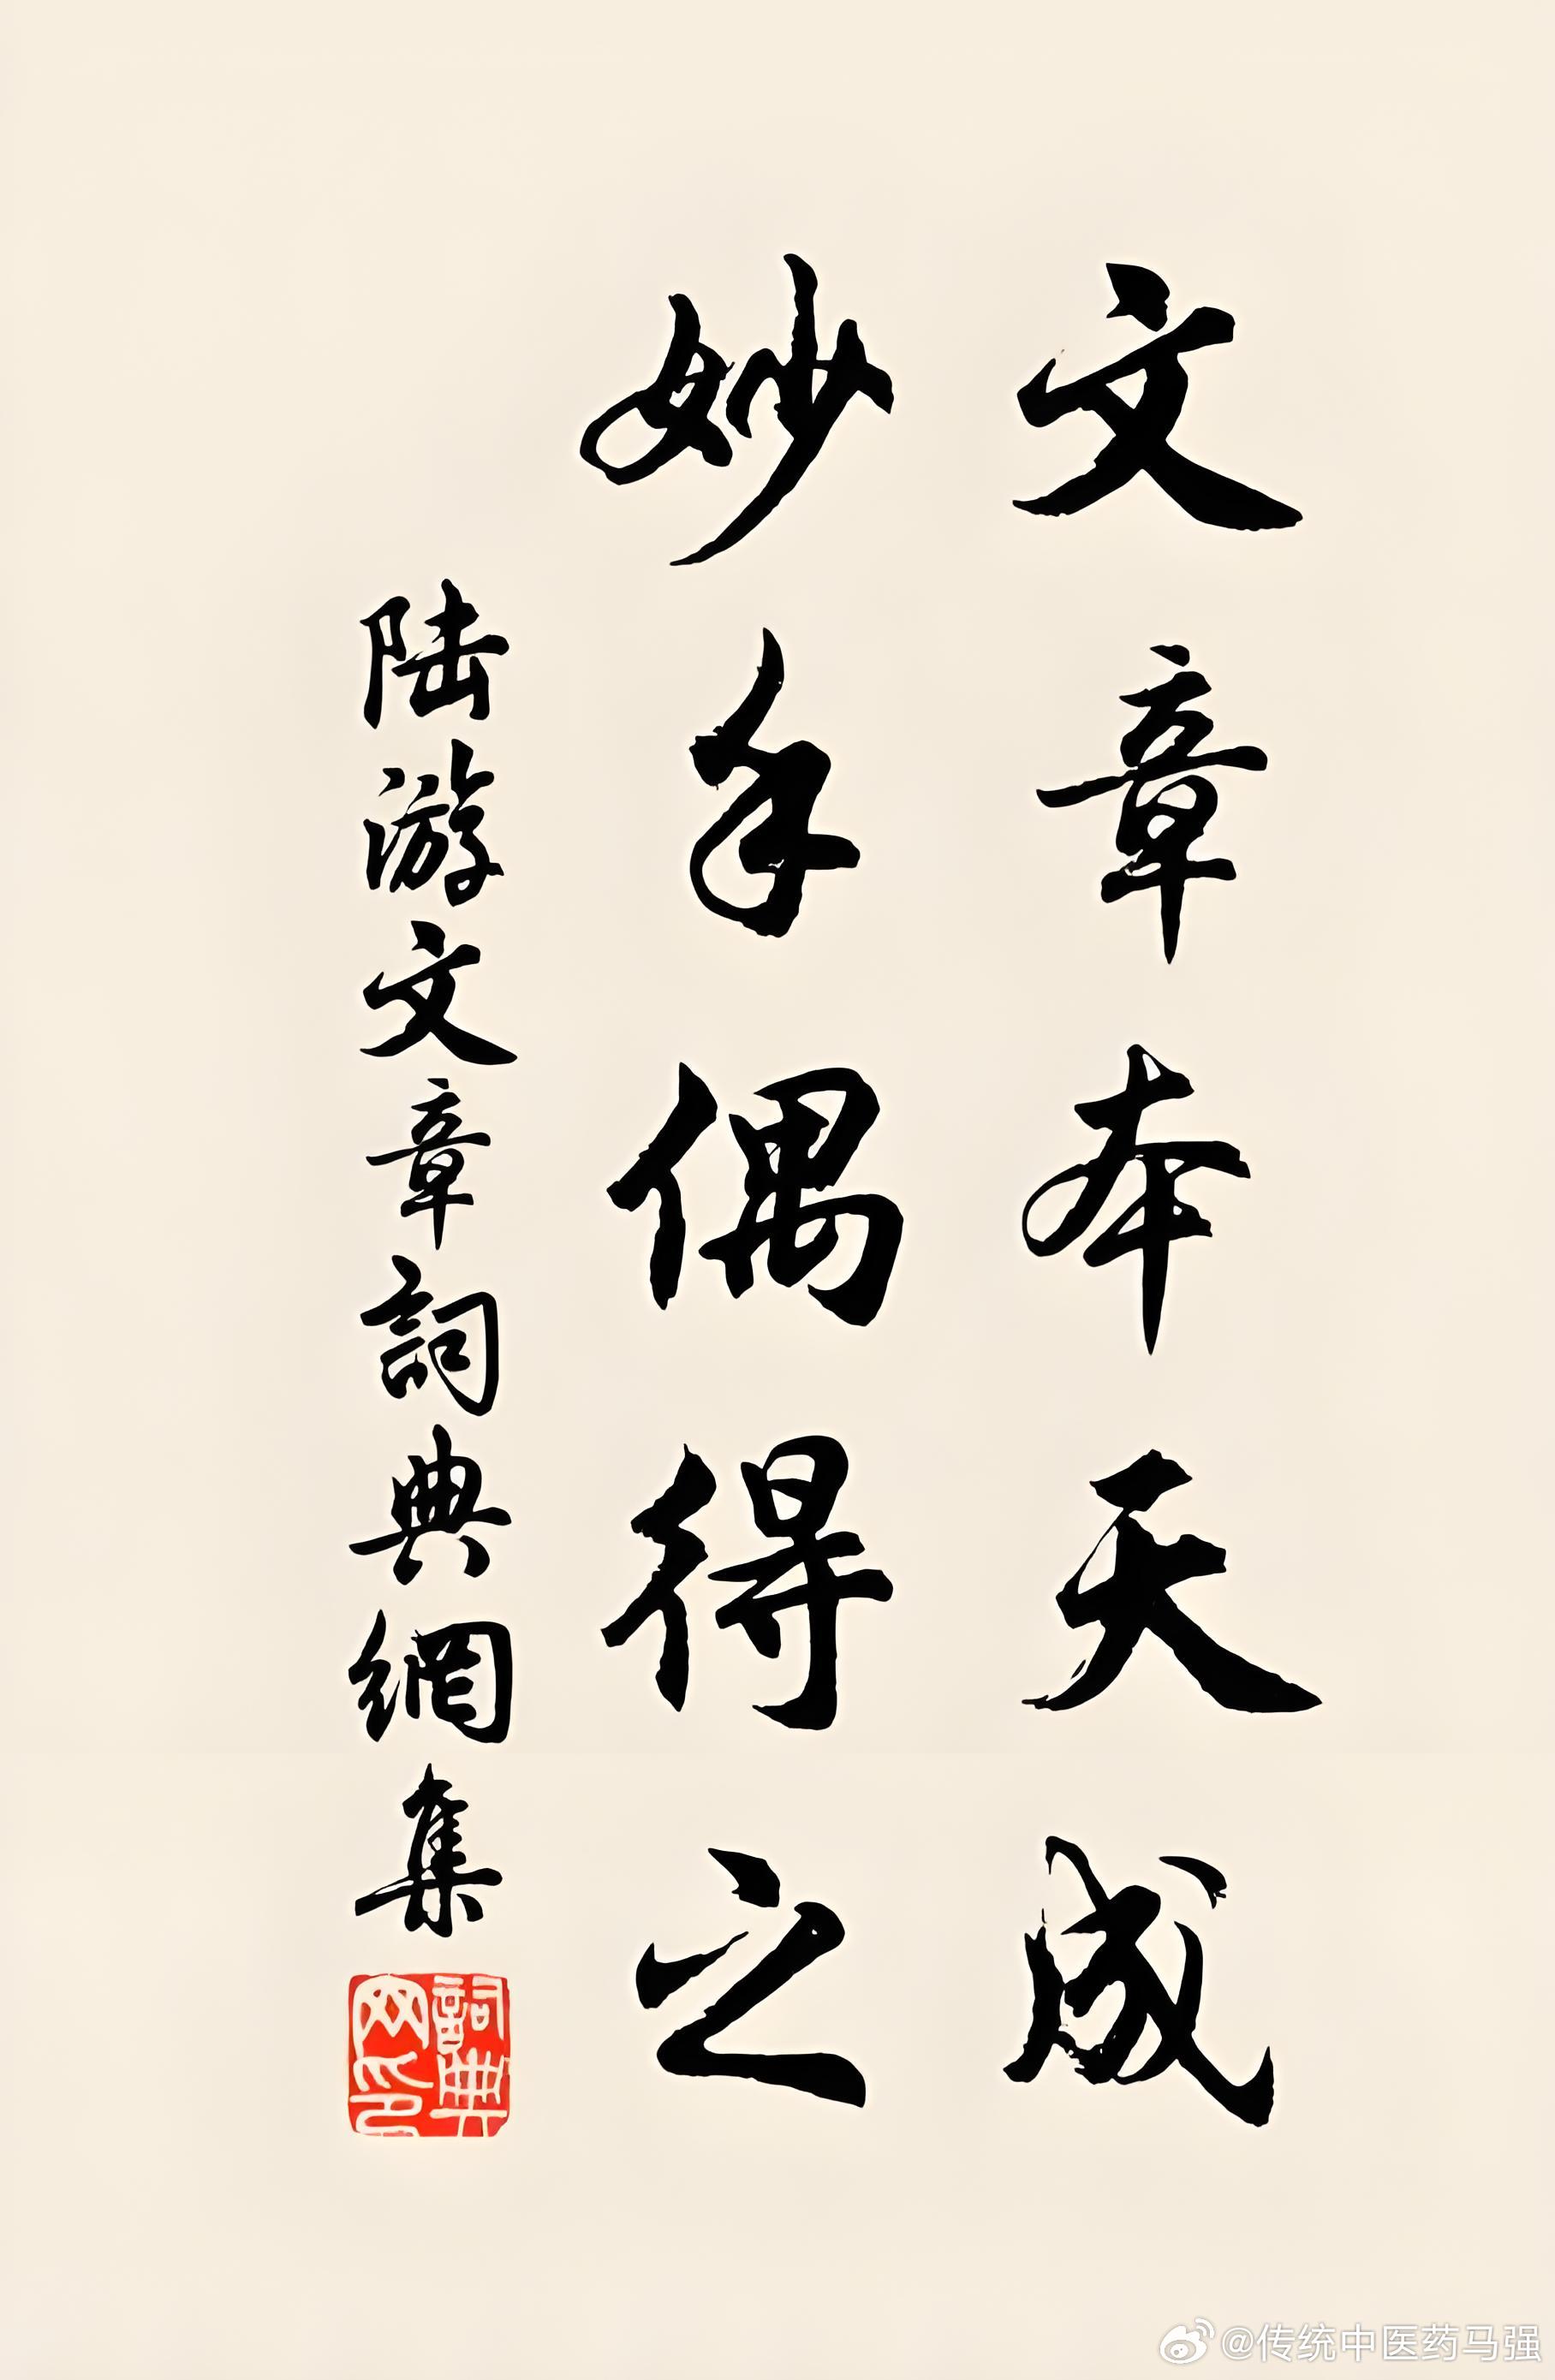 文章本天成
妙手偶得之
陸游文章詞典網集
詞典网印
@传统中医药马强